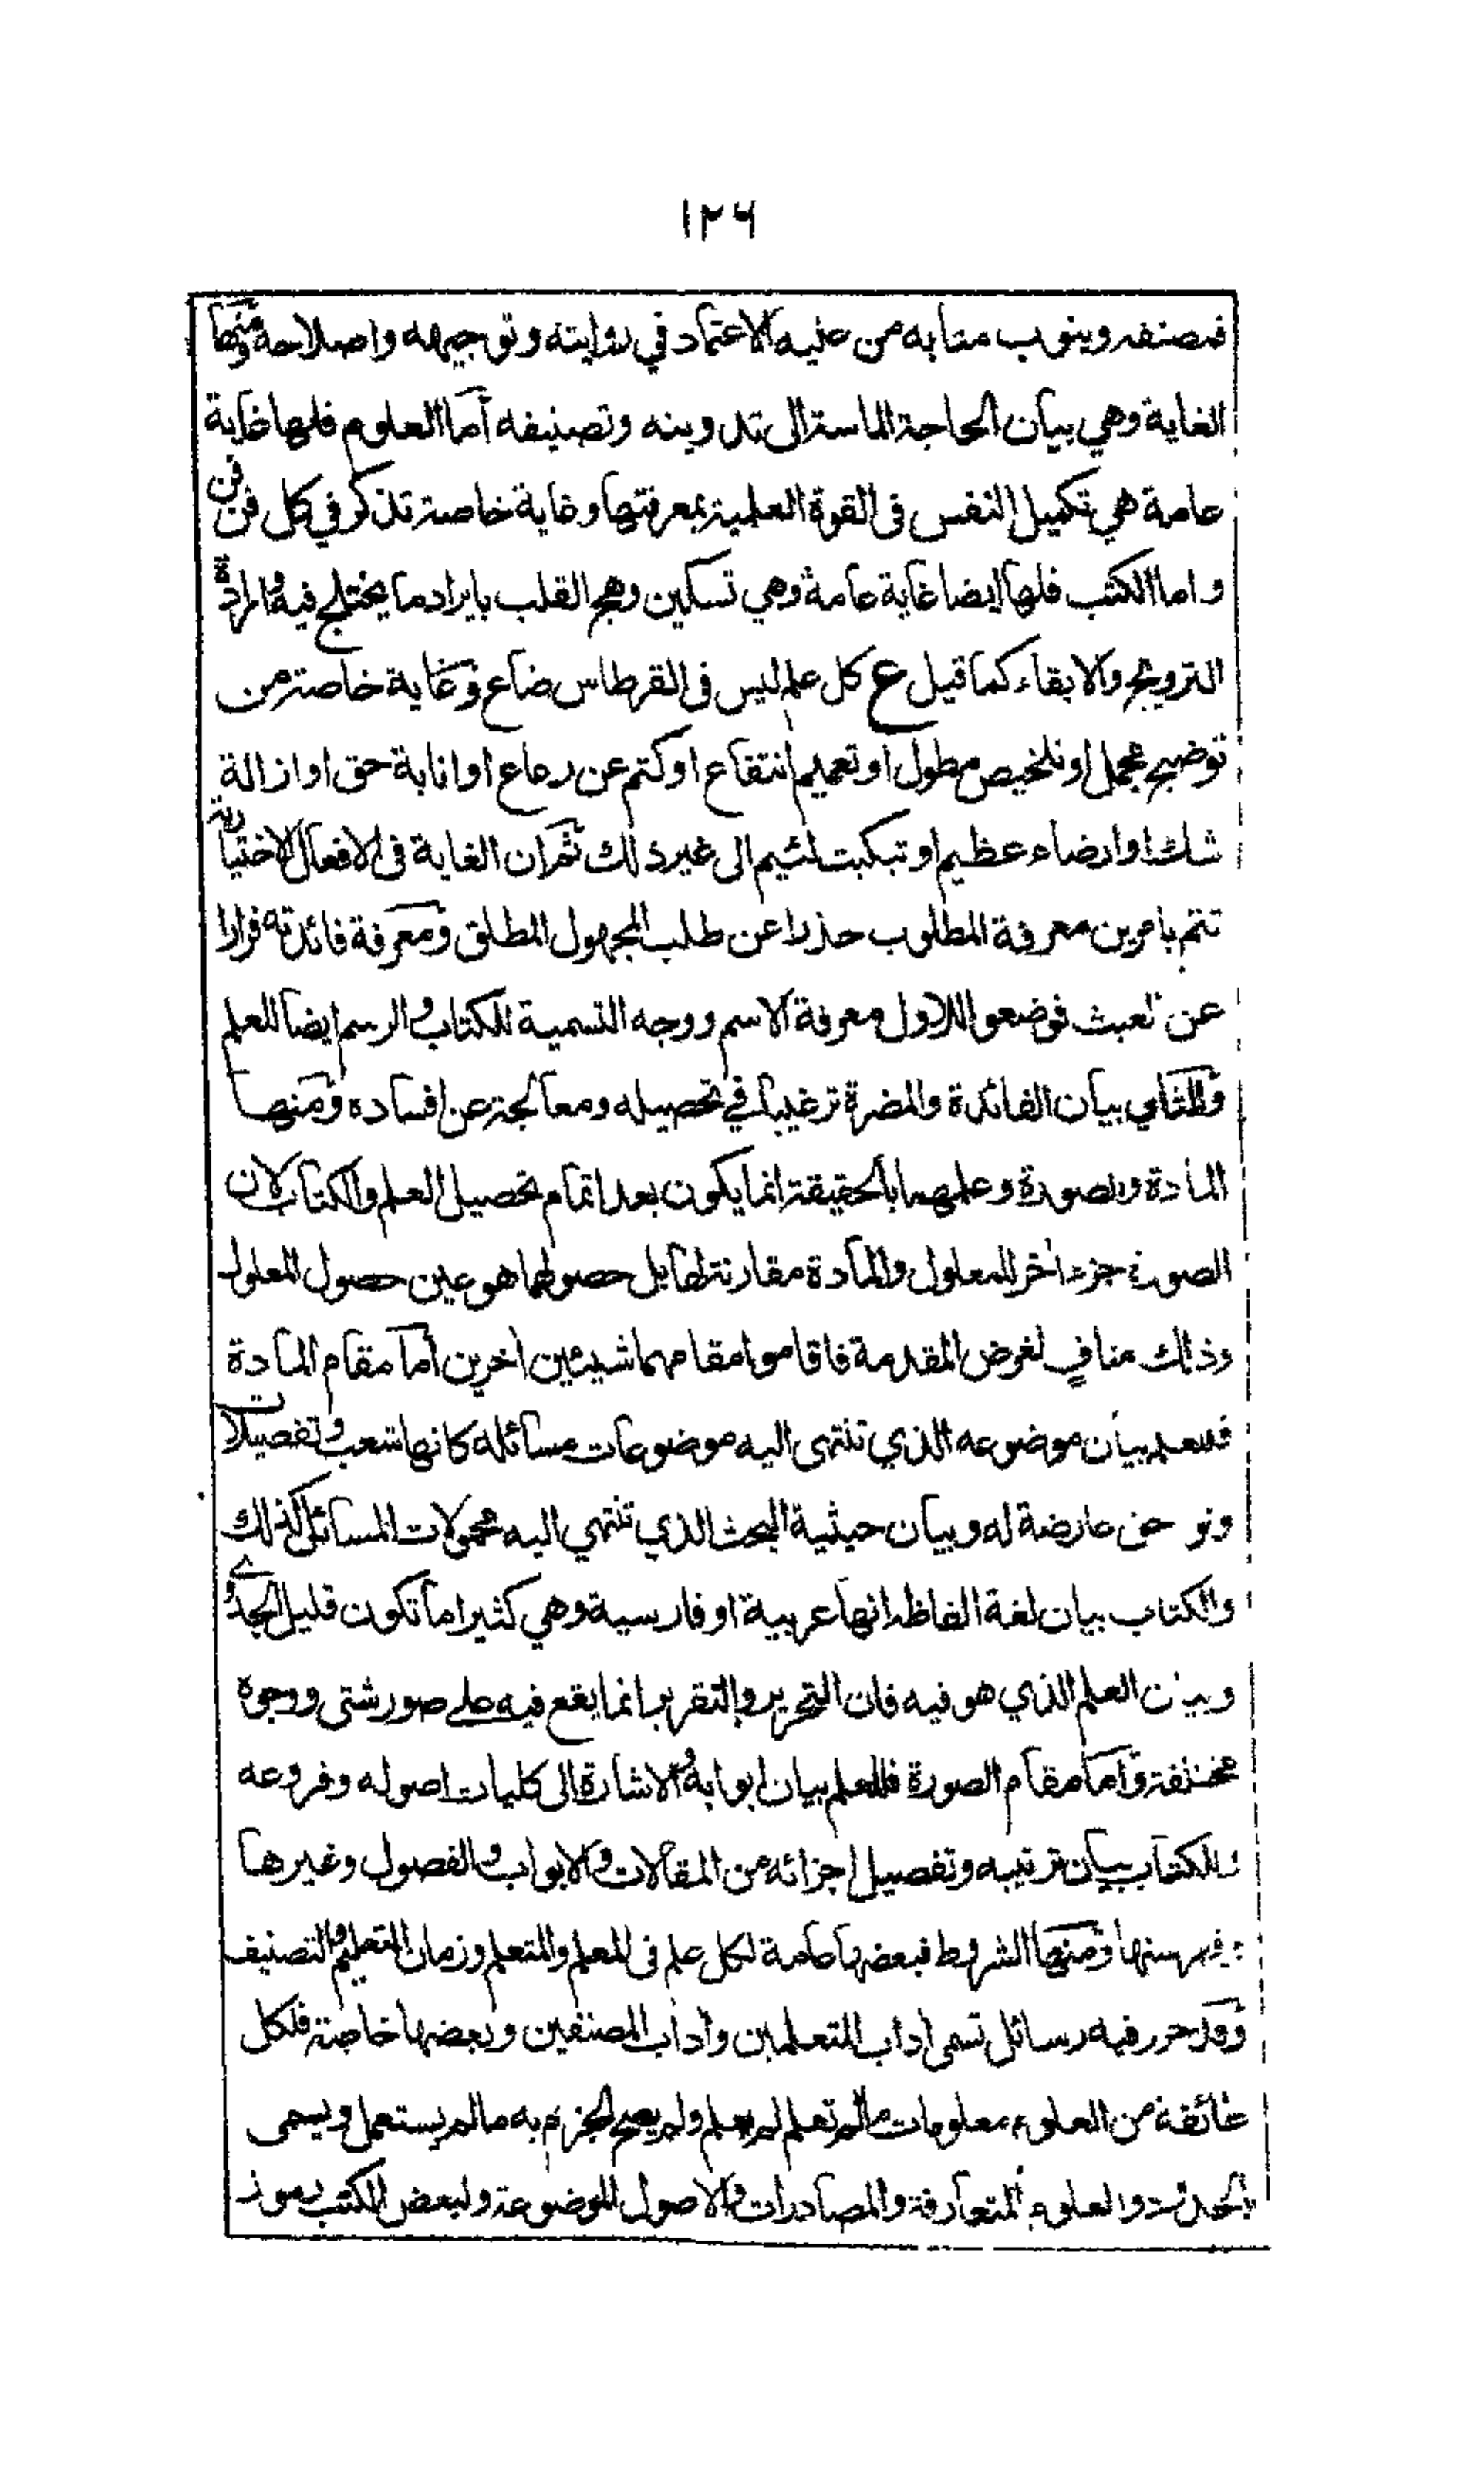 ١٢٦
فمصنفه وينوب منابه من عليه الاعتماد في روايته وتوجيهه واصلاحه ومنها
الغاية وهي بيان الحاجة الماسة الى تدوينه وتصنيفه أما العلوم فلها غاية
عامة هي تكميل النفس فى القوة العلمية بمعرفتها وغاية خاصة تذكر في كل فن فن
واما الكتب فلها ايضا غاية عامة وهي تسكين وهج القلب بايراد ما يختلج فيه وارادة
الترويج والابقاء كما قيل ع كل علم ليس فى القرطاس ضاع وغاية خاصة من
توضيح مجمل او تلخيص مطول او تعميم انتفاع او كتم عن رعاع او انابة حق او ازالة
شك او ارضاء عظيم او تبكيت لئيم الى غير ذلك ثم ان الغاية فى الافعال الاختيارية
تتم بامرين معرفة المطلوب حذرا عن طلب المجهول المطلق ومعرفة فائدته فرارا
عن العبث فوضعوا للاول معرفة الاسم ووجه التسمية للكتاب والرسم ايضا للعلم
وللثاني بيان الفائدة والمضرة ترغيبا في تحصيله ومعالجة عن افساده ومنها
المادة والصورة وعلمهما بالحقيقة انما يكون بعد اتمام تحصيل العلم والكتاب لان
الصورة جزء اخر للمعلول والمادة مقارنة لها بل حصولهما هو عين حصول المعلول
وذلك مناف لغرض المقدمة فاقاموا مقامهما شيئين اخرين أما مقام المادة
فللعلم بيان موضوعه الذي تنتهى اليه موضوعات مسائله كانها شعب وتفصيلات
ولواحق عارضة له وبيان حيثية البحث الذي تنتهي اليه محمولات المسائل كذلك
وللكتاب بيان لغة الفاظه انها عربية او فارسية وهي كثيرا ما تكون قليل الجدوى
وبيان العلم الذي هو فيه فان التحرير والتقرير انما يقع فيه على صور شتى ووجوه
مختلفة وأما مقام الصورة فللعلم بيان ابوابه والاشارة الى كليات اصوله وفروعه
وللكتاب بيان ترتيبه وتفصيل اجزائه من المقالات والابواب والفصول وغيرها
وفهرستها ومنها الشروط فبعضها عامة لكل علم فى المعلم والمتعلم وزمان التعليم والتصنيف
وقد حرر فيه رسائل تسمى اداب المتعلمين واداب المصنفين وبعضها خاصة فلكل
طائفة من العلوم معلومات مالم تعلم لم يعلم ولم يصح الجزم به مالم يستعمل ويسمى
بالحدود والعلوم المتعارفة والمصادرات والاصول الموضوعة ولبعض الكتب رموز